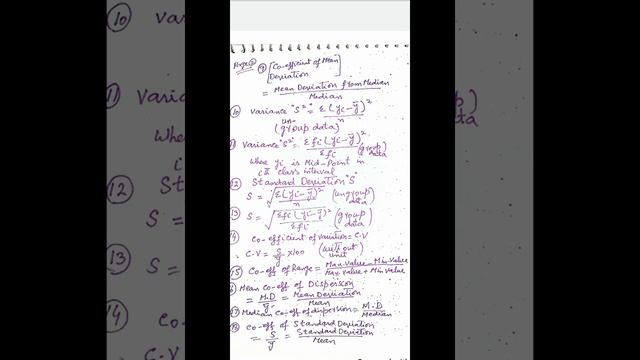 Page② ⑨ [Co-efficient of Mean
Deviation]
= Mean Deviation from Median / Median
⑩ Variance "S²" = Σ(yi-ȳ)² / n
(un-group data)
⑪ Variance "S²" = Σfi(yi-ȳ)² / Σfi (group data)
Where yi is Mid-Point in
ith class interval
⑫ Standard Deviation "S"
S = √Σ(yi-ȳ)² / n (ungroup data)
⑬ S = √Σfi(yi-ȳ)² / Σfi (group data)
14 Co-efficient of variation = C.V
C.V = S/ȳ × 100 (without unit)
⑮ Co-eff of Range = Max.Value - Min.Value / Max.Value + Min.Value
16 Mean Co-eff of Dispersion
= M.D / ȳ = Mean Deviation / Mean
⑰ Median Co-eff of dispersion = M.D / Median
⑱ Co-eff of Standard Deviation
= S / ȳ = Standard Deviation / Mean
10 Va
11 Varia
Whe
i
12 St
S =
13 S =
14
Co-
C.V
)²
group data)
p
n